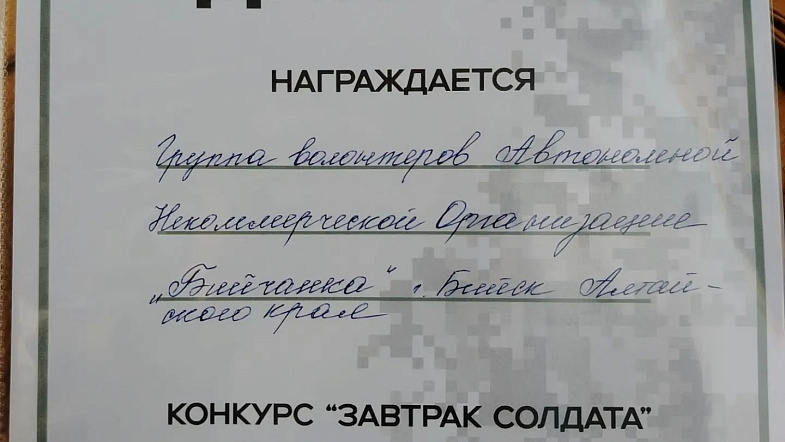 НАГРАЖДАЕТСЯ
Группа волонтеров Автономной
Некоммерческой Организации
„Бийчанка“ г. Бийск Алтай-
ского края
КОНКУРС “ЗАВТРАК СОЛДАТА”